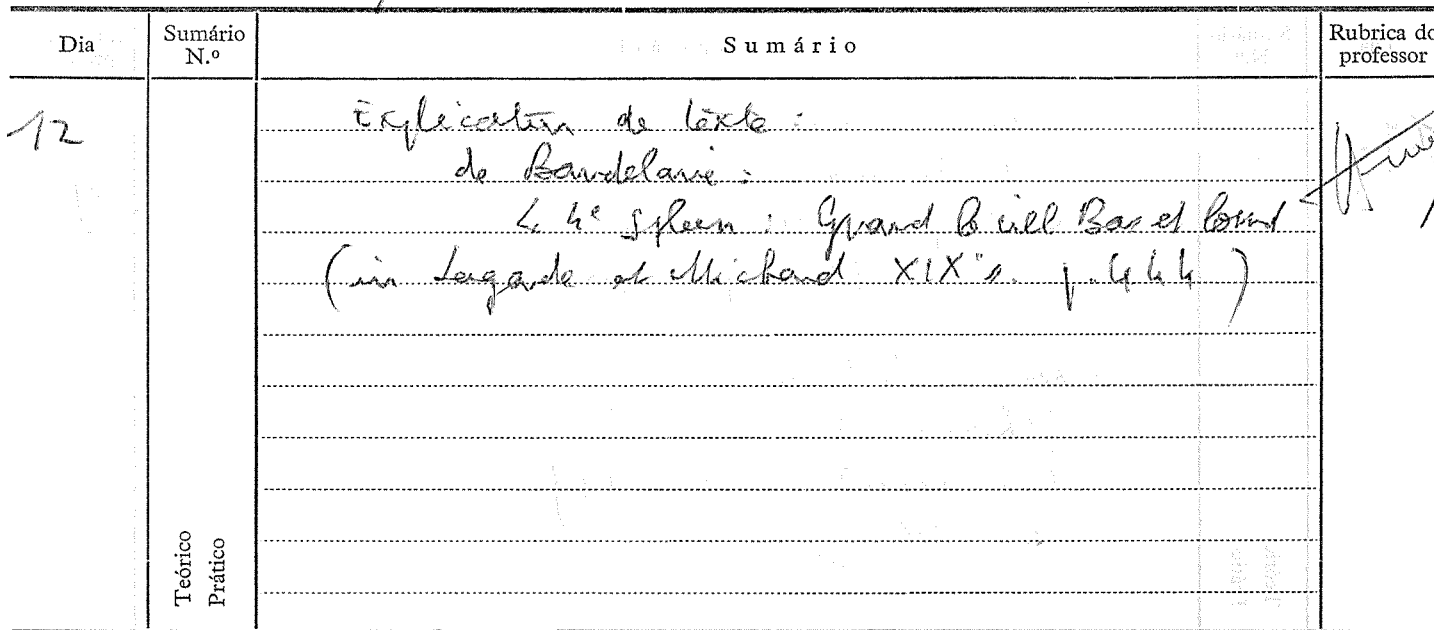 Dia
Sumário N.º
Sumário
Rubrica do professor
12
Explication de texte :
de Baudelaire :
Le 4e Spleen : Quand le ciel Bas et lourd
(in Lagarde et Michard XIXe s. p. 444)
Teórico
Prático